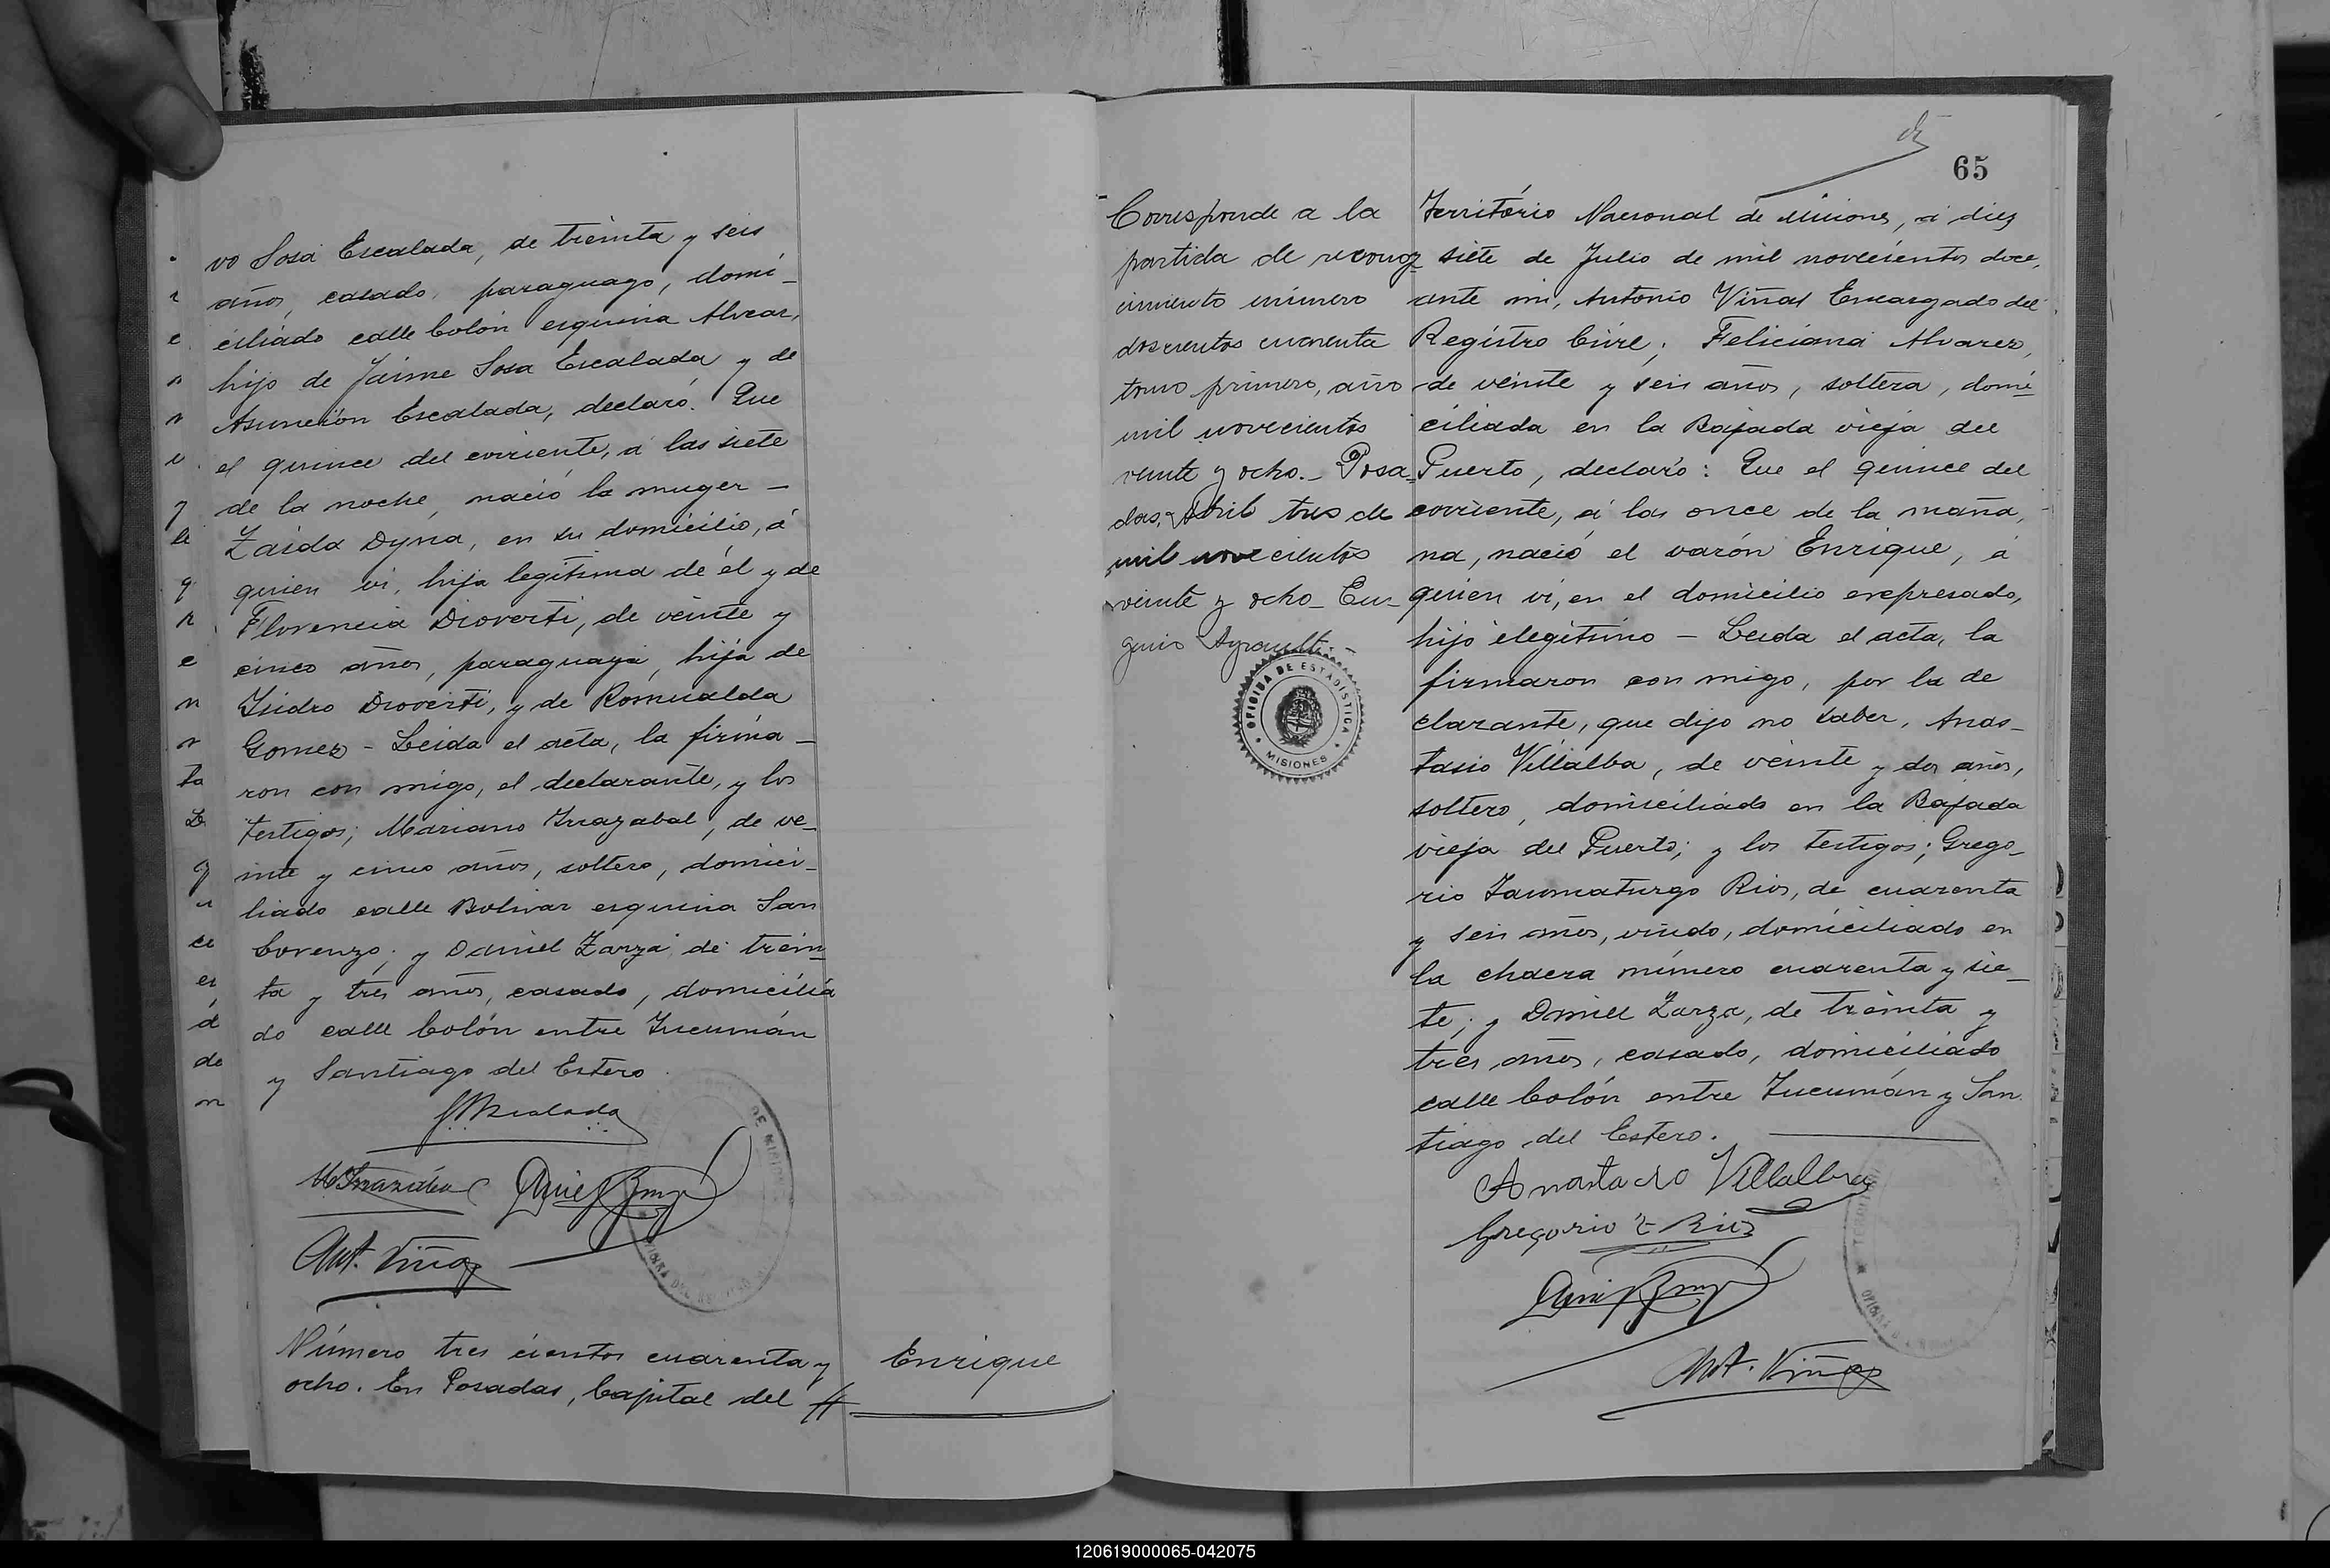 vo Sosa Escalada, de treinta y seis
años, casado, paraguayo, domi-
ciliado calle Colón esquina Alvear,
hijo de Jaime Sosa Escalada y de
Asunción Escalada, declaró: Que
el quince del corriente, á las siete
de la noche, nació la muger -
Zaida Dyna, en su domicilio, á
quien vi, hija legítima de él y de
Florencia Dioverti, de veinte y
cinco años, paraguaya, hija de
Isidro Dioverti, y de Romualda
Gomez - Leida el acta, la firma-
ron con migo, el declarante, y los
testigos; Mariano Inzabal, de ve-
inte y cinco años, soltero, domici-
liado calle Bolivar esquina San
Lorenzo; y Daniel Zarza de trein
ta y tres años, casado, domicilia
do calle Colón entre Tucumán
y Santiago del Estero
Ant. Viñas
Número tres cientos cuarenta y
ocho. En Posadas, Capital del
Enrique
65
Corresponde a la
partida de recono
cimiento número
doscientos cuarenta
tomo primero, año
mil novecientos
veinte y ocho.- Posa-
das, Abril tres de
mil novecientos
veinte y ocho - Eu-
genio Ayrault. -
OFICINA DE ESTADISTICA
MISIONES
Território Nacional de Misiones, á diez
siete de Julio de mil novecientos doce,
ante mi, Antonio Viñas Encargado del
Registro Civil; Feliciana Alvarez,
de veinte y seis años, soltera, domi-
ciliada en la Bajada vieja del
Puerto, declaró: Que el quince del
corriente, á las once de la maña,
na, nació el varón Enrique, á
quien vi, en el domicilio expresado,
hijo ilegítimo - Leida el acta, la
firmaron con migo, por la de
clarante, que dijo no saber, Anas-
tasio Villalba, de veinte y dos años,
soltero, domiciliado en la Bajada
vieja del Puerto; y los testigos; Grego-
rio Taumaturgo Rios, de cuarenta
y seis años, viudo, domiciliado en
la chacra número cuarenta y sie-
te; y Daniel Zarza, de treinta y
tres años, casado, domiciliado
calle Colón entre Tucumán y San
tiago del Estero.
Anastacio Villalba
Gregorio T Rios
Ant. Viñas
120619000065-042075